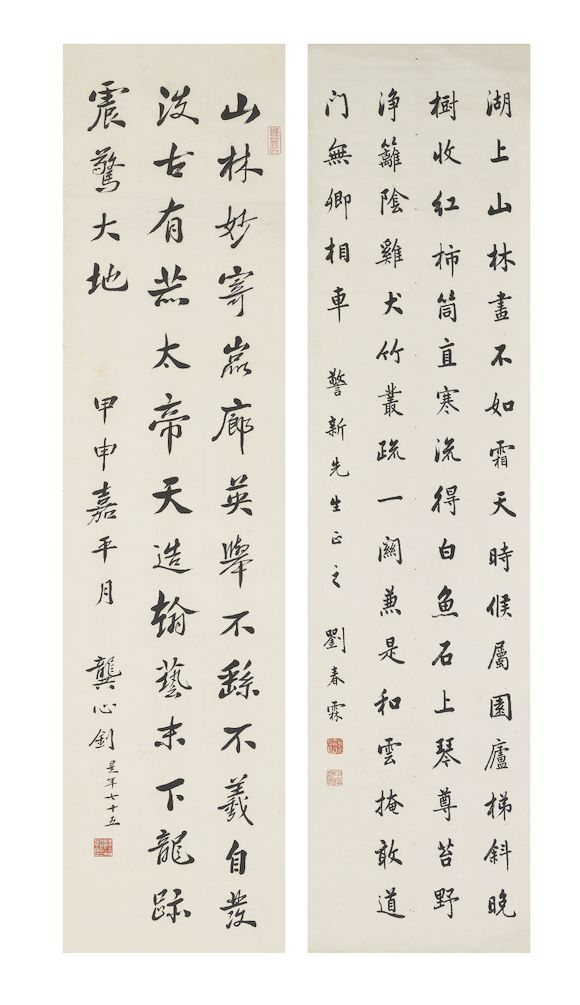 湖上山林畫不如霜天時候屬園廬梯斜晚
樹收紅柿筒直寒流得白魚石上琴尊苔野
淨籬陰雞犬竹叢疏一關兼是和雲掩敢道
門無卿相車 警新先生正之 劉春霖
山林妙寄巖廊英舉不繇不羲自發
淡古有赫太帝天造翰藝末下龍跡
震驚大地 甲申嘉平月 龔心釗 是年七十五